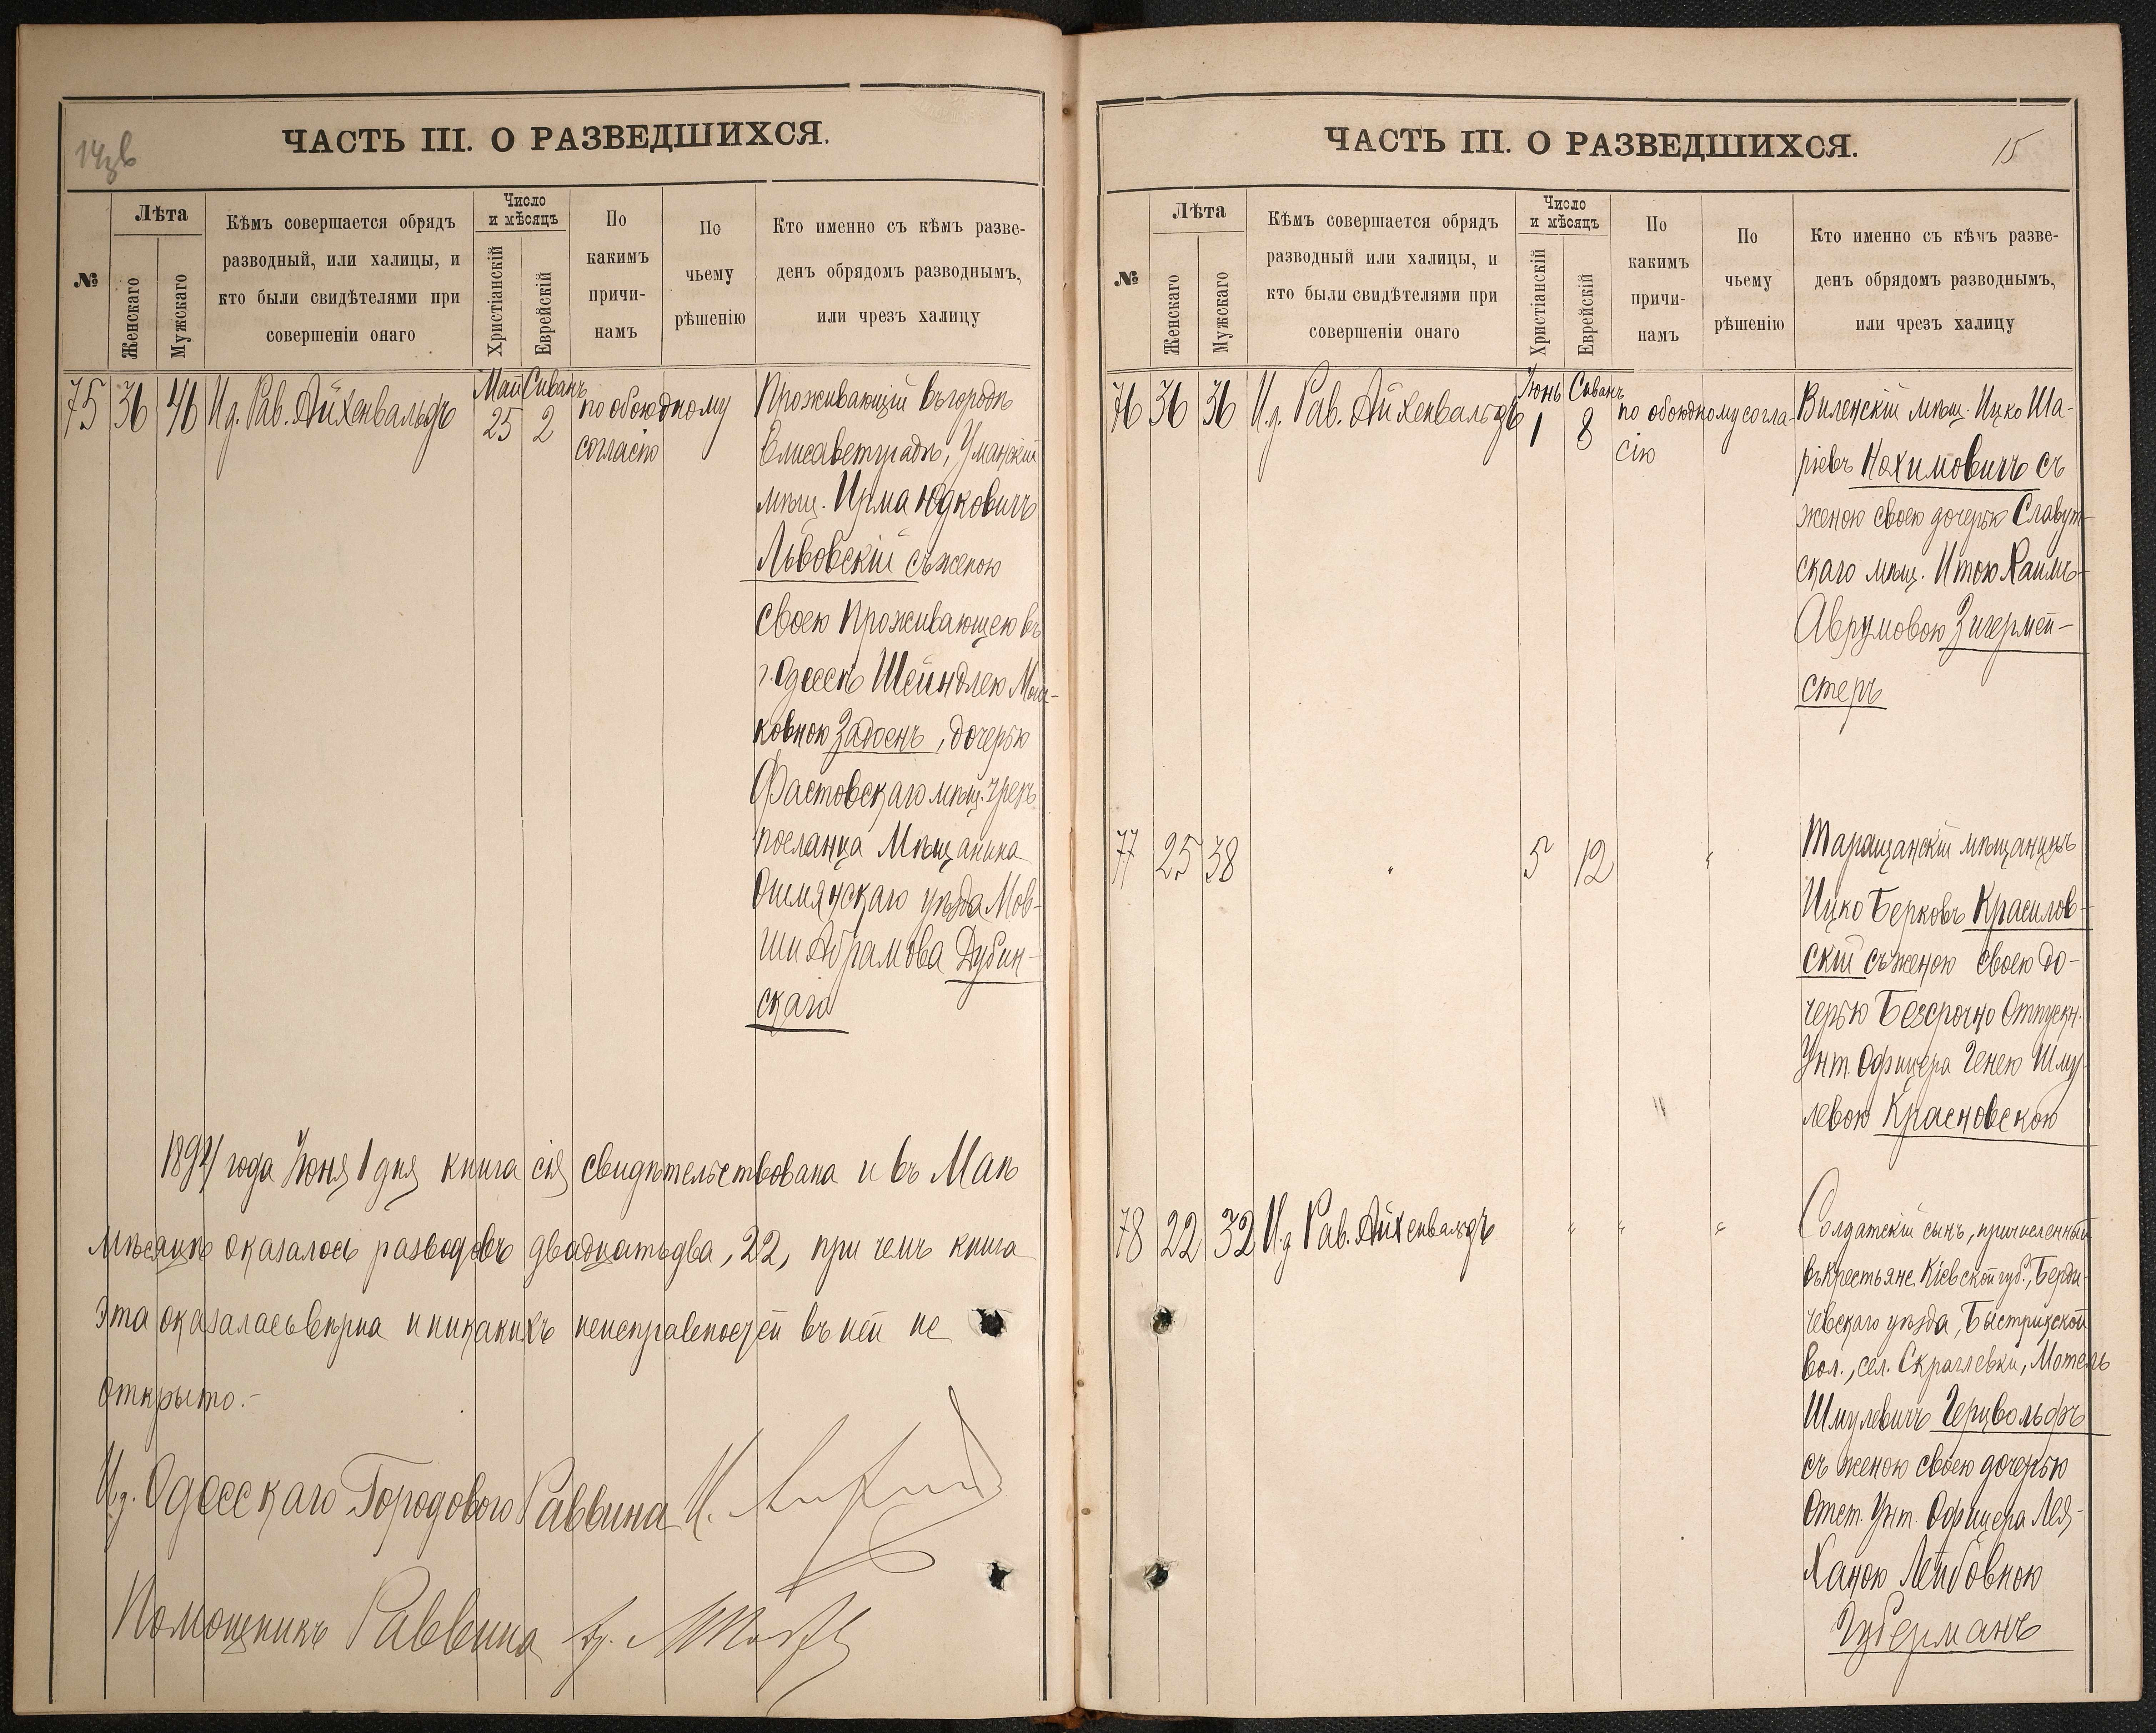 14зв
ЧАСТЬ III. О РАЗВЕДШИХСЯ.
№
Лѣта
Женскаго
Мужскаго
Кѣмъ совершается обрядъ
разводный, или халицы, и
кто были свидѣтелями при
совершеніи онаго
Число
и мѣсяцъ
Христіанскій
Еврейскій
По
какимъ
причи-
намъ
По
чьему
рѣшенію
Кто именно съ кѣмъ разве-
денъ обрядомъ разводнымъ,
или чрезъ халицу
75 36 46 И.д. Рав. Айхенвальдъ
Май 25
Сиванъ 2
по обоюдному
согласію
Проживающій въ городѣ
Елисаветградѣ, Уманскій
мѣщ. Ирма Юдковичъ
Львовскій съ женою
своею Проживающею въ
г. Одессѣ Шейндлею Мош-
ковною, дочерью
Фастовскаго мѣщ. чрезъ
посланца Мѣщанина
Ошмянскаго уѣзда Мов-
ши Абрамова Дубин-
скаго
1894 года Іюня 1 дня книга сія свидѣтельствована и въ Маѣ
мѣсяцѣ оказалось разводовъ двадцать два, 22, при чемъ книга
эта оказалась вѣрна и никакихъ неисправностей въ ней не
открыто.-
И.д. Одесскаго Городового Раввина
Помощникъ Раввина
15
ЧАСТЬ III. О РАЗВЕДШИХСЯ.
№
Лѣта
Женскаго
Мужскаго
Кѣмъ совершается обрядъ
разводный или халицы, и
кто были свидѣтелями при
совершеніи онаго
Число
и мѣсяцъ
Христіанскій
Еврейскій
По
какимъ
причи-
намъ
По
чьему
рѣшенію
Кто именно съ кѣмъ разве-
денъ обрядомъ разводнымъ,
или чрезъ халицу
76 36 36 И.д. Рав. Айхенвальдъ
Іюнь 1
Сиванъ 8
по обоюдному согла-
сію
Виленскій мѣщ. Ицко Ша-
ріевъ Нохимовичъ съ
женою своею дочерью Славут-
скаго мѣщ. Итою Хаимъ-
Аврумовою Зигермей-
стеръ
77 25 38 " 5 12 "
Таращанскій мѣщанинъ
Ицко Берковъ Красилов-
скій съ женою своею до-
черью Безсрочно Отпускн.
Унт. Офицера Генею Шму-
левою Красновскою
78 22 32 И.д Рав. Айхенвальдъ " " "
Солдатскій сынъ, причисленный
въ крестьяне Кіевской губ., Берди-
чевскаго уѣзда, Быстрикской
вол., сел. Скраглевки, Мотель
Шмулевичъ Герцвольфъ
съ женою своею дочерью
Отст. Унт. Офицера Лея-
Ханою Лейбовною
Губерманъ